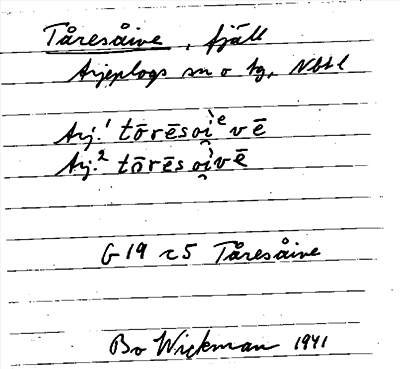 Tåresåive, fjäll
Arjeplogs sn o tg, Nbtl
Arj.¹ tōrēsoi̯ᵉvē
Arj.² tōrēsoi̯vē
G 19 c5 Tåresåive
Bo Wickman 1941